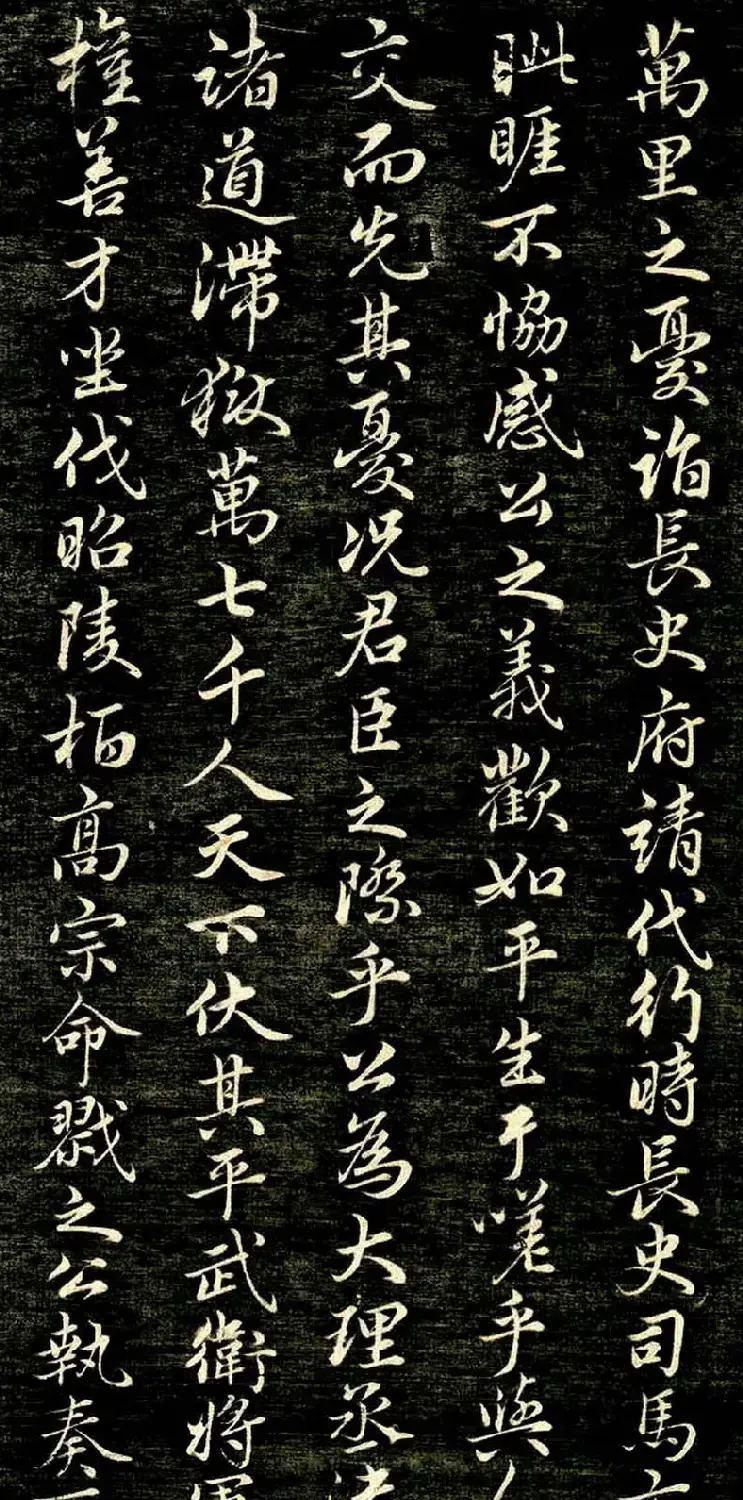 萬里之憂詣長史府請代行時長史司馬
眦睚不恊感公之義歡如平生于嗟乎與
交而先其憂况君臣之際乎公為大理丞
諸道滯獄萬七千人天下伏其平武衛將
權善才坐伐昭陵栢髙宗命戮之公執奏